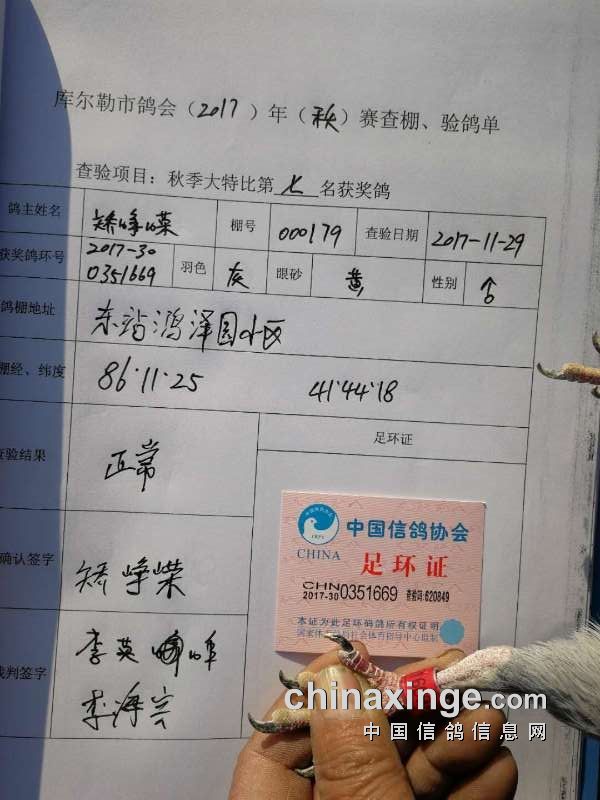 库尔勒市鸽会（2017）年（秋）赛查棚、验鸽单
查验项目：秋季大特比第 七 名获奖鸽
鸽主姓名 矫峥嵘 棚号 000179 查验日期 2017-11-29
获奖鸽环号 2017-30 0351669 羽色 灰 眼砂 黄 性别 ♂
鸽棚地址 东站鸿泽园小区
棚经、纬度 86·11·25 41·44·18
查验结果 正常
足环证
确认签字 矫峥嵘
裁判签字 李英峰
李海
中国信鸽协会
CHINA
足环证
CHN
2017-30 0351669 查验码:620849
本证为此足环码鸽所有权证明
国家体育总局社会体育指导中心监制
chinaxinge.com
中国信鸽信息网